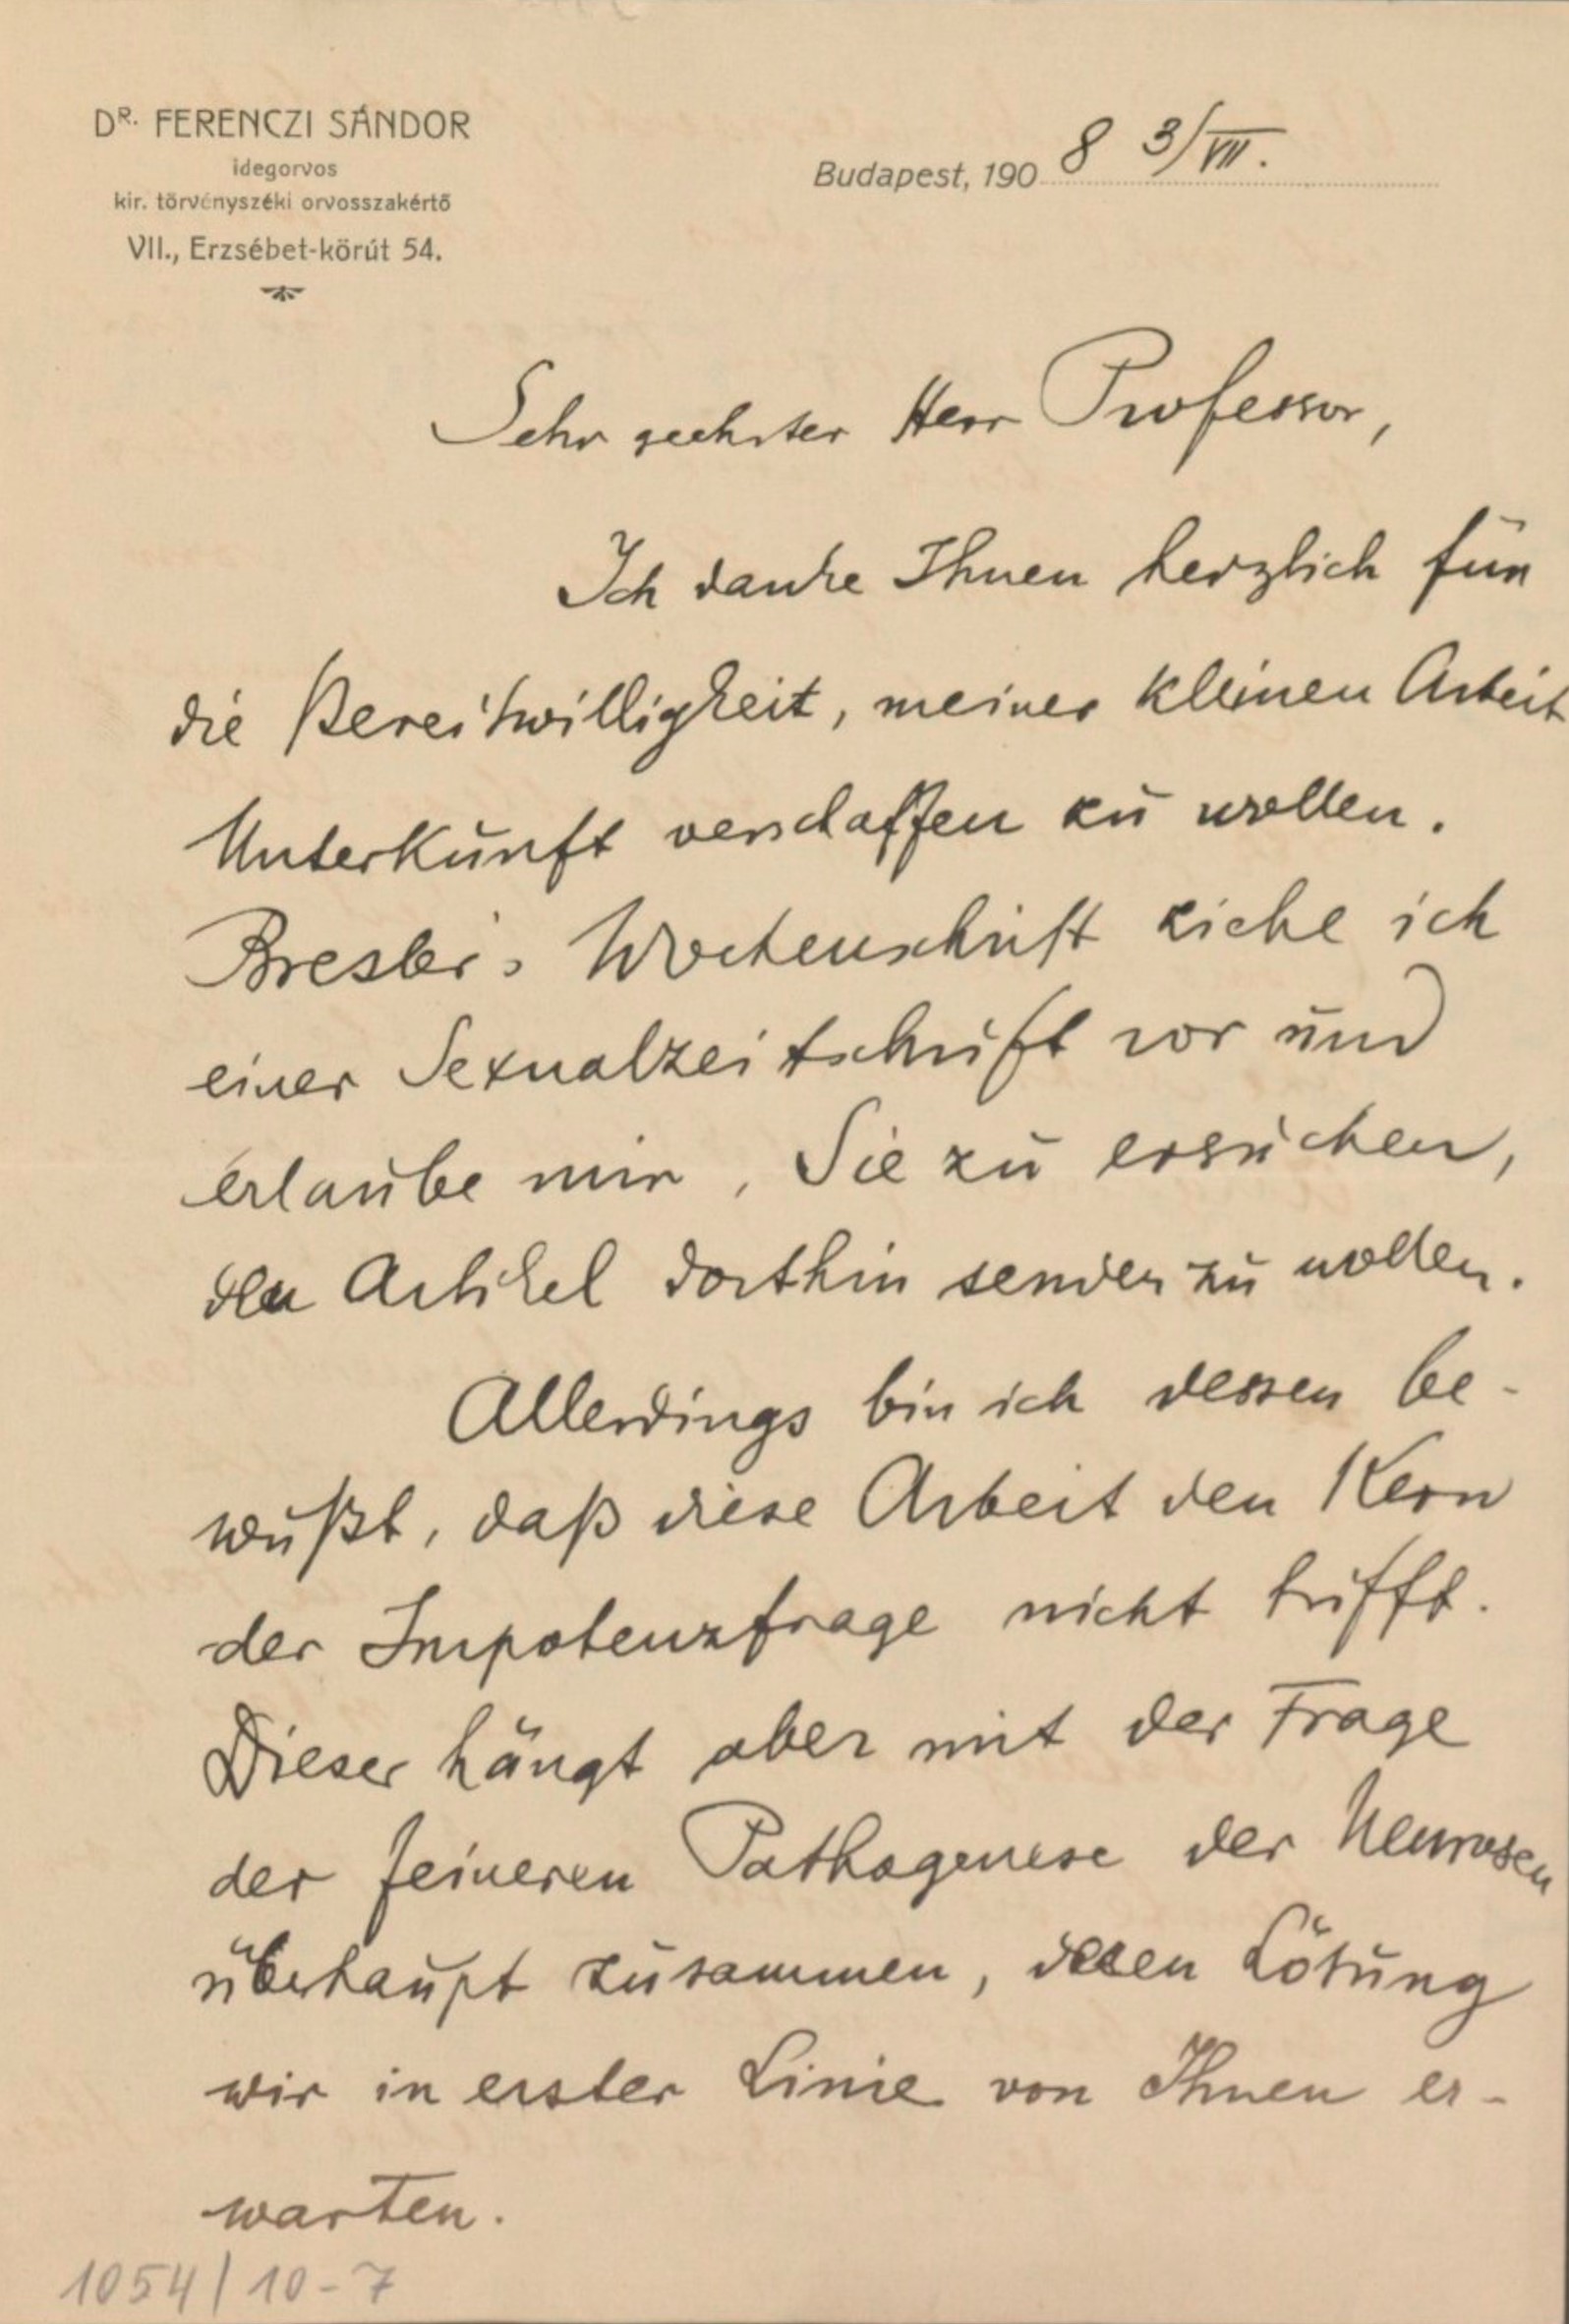 DR. FERENCZI SÁNDOR
idegorvos
kir. törvényszéki orvosszakértő
VII., Erzsébet-körút 54.
Budapest, 1908 3/VII.
Sehr geehrter Herr Professor,
Ich danke Ihnen herzlich für
die Bereitwilligkeit, meiner kleinen Arbeit
Unterkunft verschaffen zu wollen.
Bresler's Wochenschrift ziehe ich
einer Sexualzeitschrift vor und
erlaube mir, Sie zu ersuchen,
den Artikel dorthin senden zu wollen.
Allerdings bin ich dessen be-
wußt, daß diese Arbeit den Kern
der Impotenzfrage nicht trifft.
Dieser hängt aber mit der Frage
der feineren Pathogenese der Neurosen
überhaupt zusammen, deren Lösung
wir in erster Linie von Ihnen er-
warten.
1054/10-7